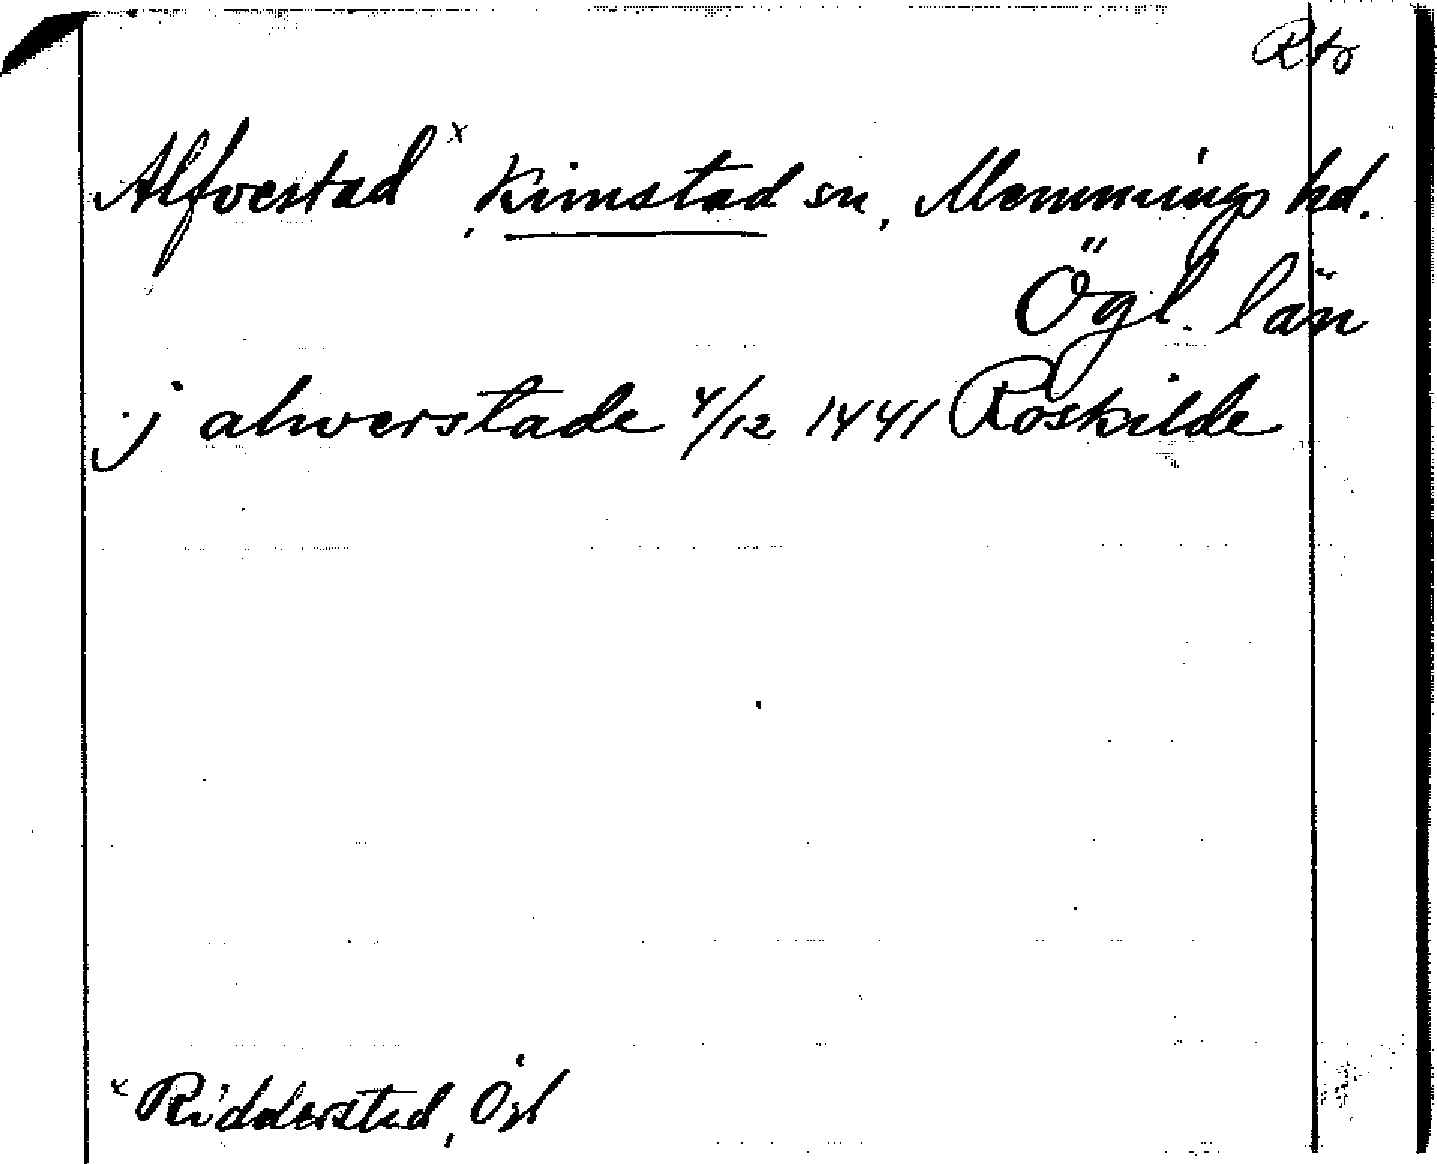 Rto
Alfvestad x, Kimstad sn, Memmings hd.
Ögl. län
j alwerstade 4/12 1441 Roskilde
x Ridderstad, Ögl